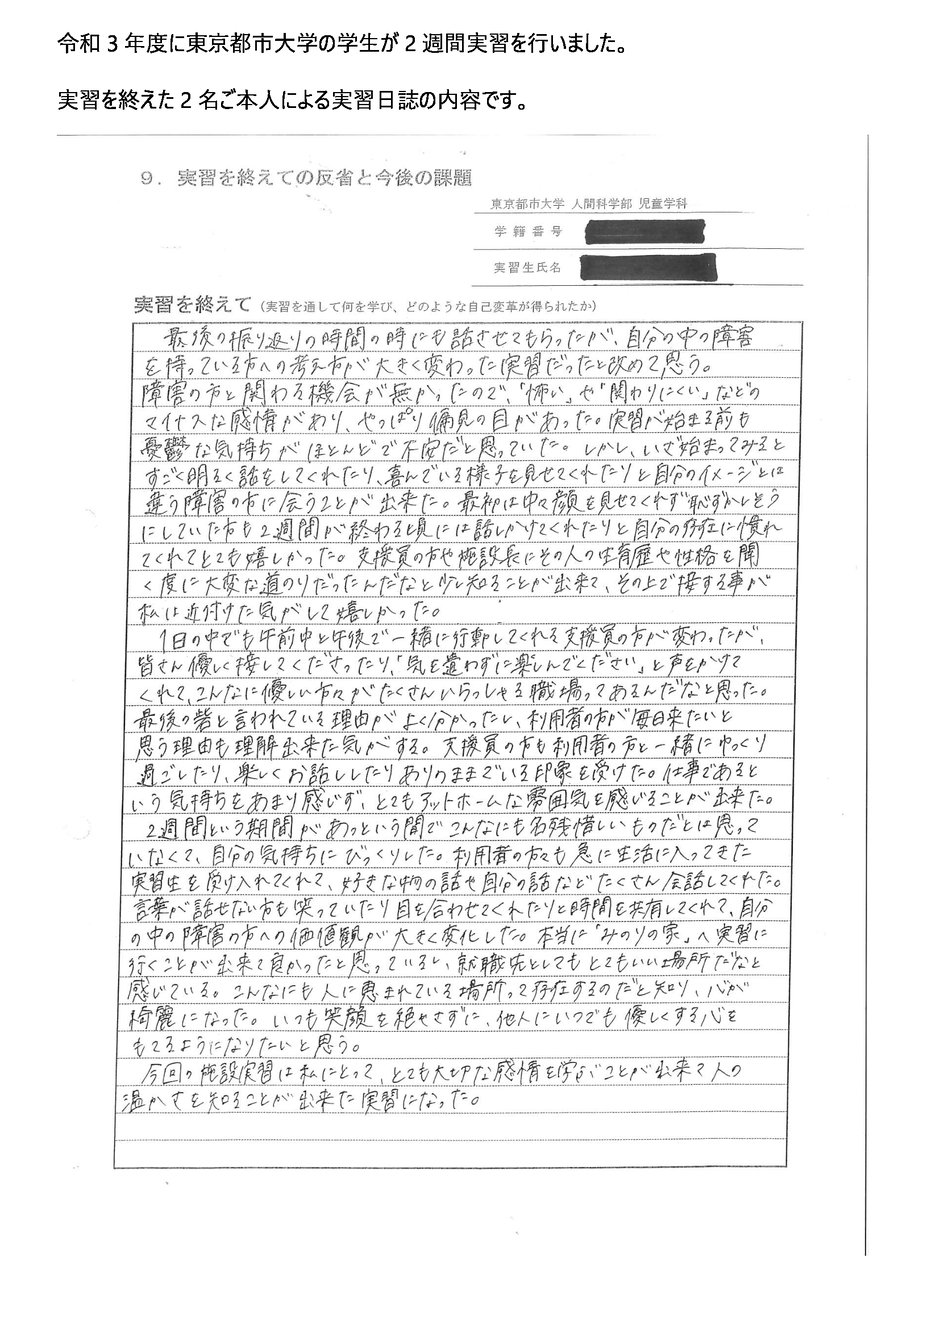 令和３年度に東京都市大学の学生が２週間実習を行いました。
実習を終えた２名ご本人による実習日誌の内容です。
９．実習を終えての反省と今後の課題
東京都市大学 人間科学部 児童学科
学籍番号
実習生氏名
実習を終えて（実習を通して何を学び、どのような自己変革が得られたか）
最後の振り返りの時間の時にも話させてもらったが、自分の中の障害
を持っている方への考え方が大きく変わった実習だったと改めて思う。
障害の方と関わる機会が無かったので、「怖い」や「関わりにくい」などの
マイナスな感情があり、やっぱり偏見の目があった。実習が始まる前も
憂鬱な気持ちがほとんどで不安だと思っていた。しかし、いざ始まってみると
すごく明るく話をしてくれたり、喜んでいる様子を見せてくれたりと自分のイメージとは
違う障害の方に会うことが出来た。最初は中々顔を見せてくれず恥ずかしそう
にしていた方も２週間が終わる頃には話しかけてくれたりと自分の存在に慣れ
てくれてとても嬉しかった。支援員の方や施設長にその人の生育歴や性格を聞
く度に大変な道のりだったんだなと少し知ることが出来て、その上で接する事が
私は近付けた気がして嬉しかった。
１日の中でも午前中と午後で一緒に行動してくれる支援員の方が変わったが、
皆さん優しく接してくださったり、「気を遣わずに楽しんでください」と声をかけて
くれて、こんなに優しい方々がたくさんいらっしゃる職場ってあるんだなと思った。
最後の砦と言われている理由がよく分かったし、利用者の方が毎日来たいと
思う理由も理解出来た気がする。支援員の方も利用者の方と一緒にゆっくり
過ごしたり、楽しくお話ししたりありのままでいる印象を受けた。仕事であると
いう気持ちをあまり感じず、とてもアットホームな雰囲気を感じることが出来た。
２週間という期間があっという間でこんなにも名残惜しいものだとは思って
いなくて、自分の気持ちにびっくりした。利用者の方々も急に生活に入ってきた
実習生を受け入れてくれて、好きな物の話や自分の話などたくさん会話してくれた。
言葉が話せない方も笑っていたり目を合わせてくれたりと時間を共有してくれて、自分
の中の障害の方への価値観が大きく変化した。本当に「みのりの家」へ実習に
行くことが出来て良かったと思っているし、就職先としてもとてもいい場所だなと
感じている。こんなにも人に恵まれている場所って存在するのだと知り、心が
綺麗になった。いつも笑顔を絶やさずに、他人にいつでも優しくする心を
もてるようになりたいと思う。
今回の施設実習は私にとって、とても大切な感情を学ぶことが出来て人の
温かさを知ることが出来た実習になった。